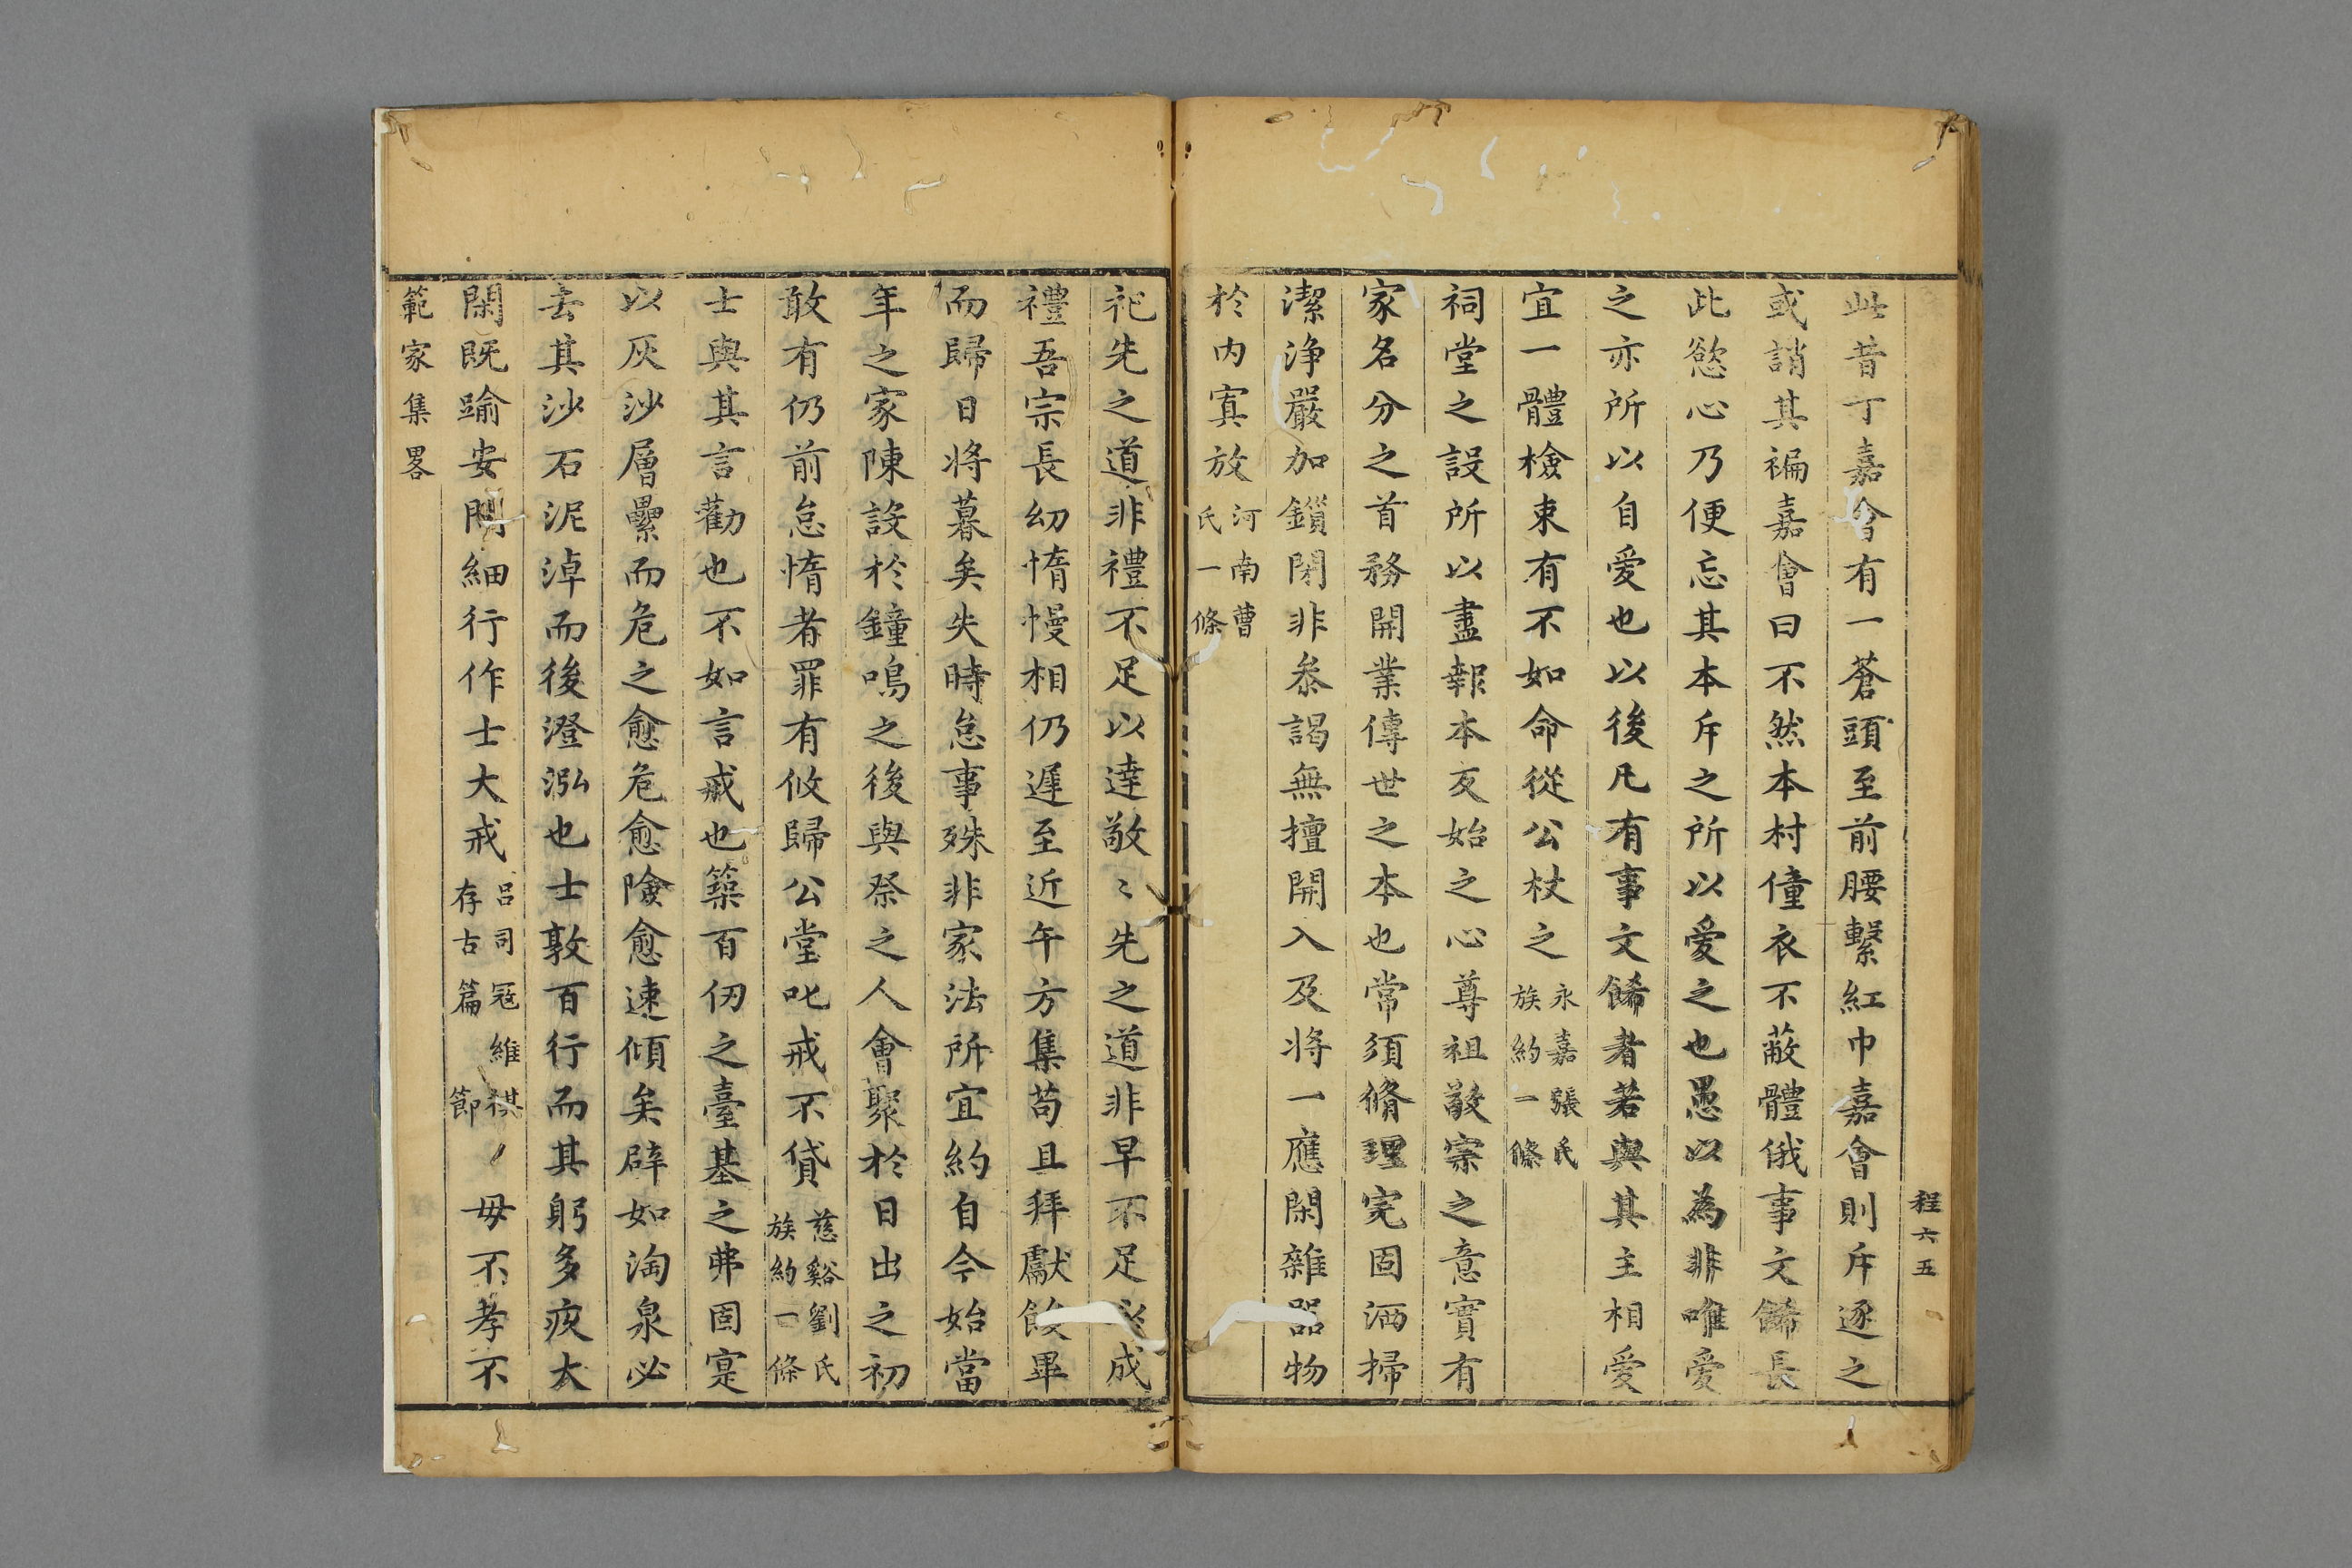 程六五
此昔丁嘉會有一蒼頭至前腰繫紅巾嘉會則斥逐之
或誚其褊嘉會曰不然本村僮衣不蔽體俄事文餙長
此慾心乃便忘其本斥之所以爱之也愚以為非唯爱
之亦所以自爱也以後凡有事文餙者若與其主相爱
宜一體檢束有不如命從公杖之永嘉張氏
族約一條
祠堂之設所以盡報本反始之心尊祖敬宗之意實有
家名分之首務開業傳世之本也常須脩理完固洒掃
潔浄嚴加鎻閉非叅謁無擅開入及将一應閑雜器物
於内寘放河南曹
氏一條
祀先之道非禮不足以達敬〻先之道非早不足以成
禮吾宗長㓜惰慢相仍遲至近午方集苟且拜獻餕畢
而歸日将暮矣失時怠事殊非家法所宜約自今始當
年之家陳設於鐘鳴之後與祭之人會聚於日出之初
敢有仍前怠惰者罪有攸歸公堂叱戒不貸慈谿劉氏
族約一條
士與其言勸也不如言戒也築百仞之臺基之弗固寔
以灰沙層纍而危之愈危愈險愈速傾矣辟如淘泉必
去其沙石泥淖而後澄泓也士敦百行而其躬多疚大
閑既踰安問細行作士大戒呂司冦維祺
存古篇 節
毋不孝不
範家集畧